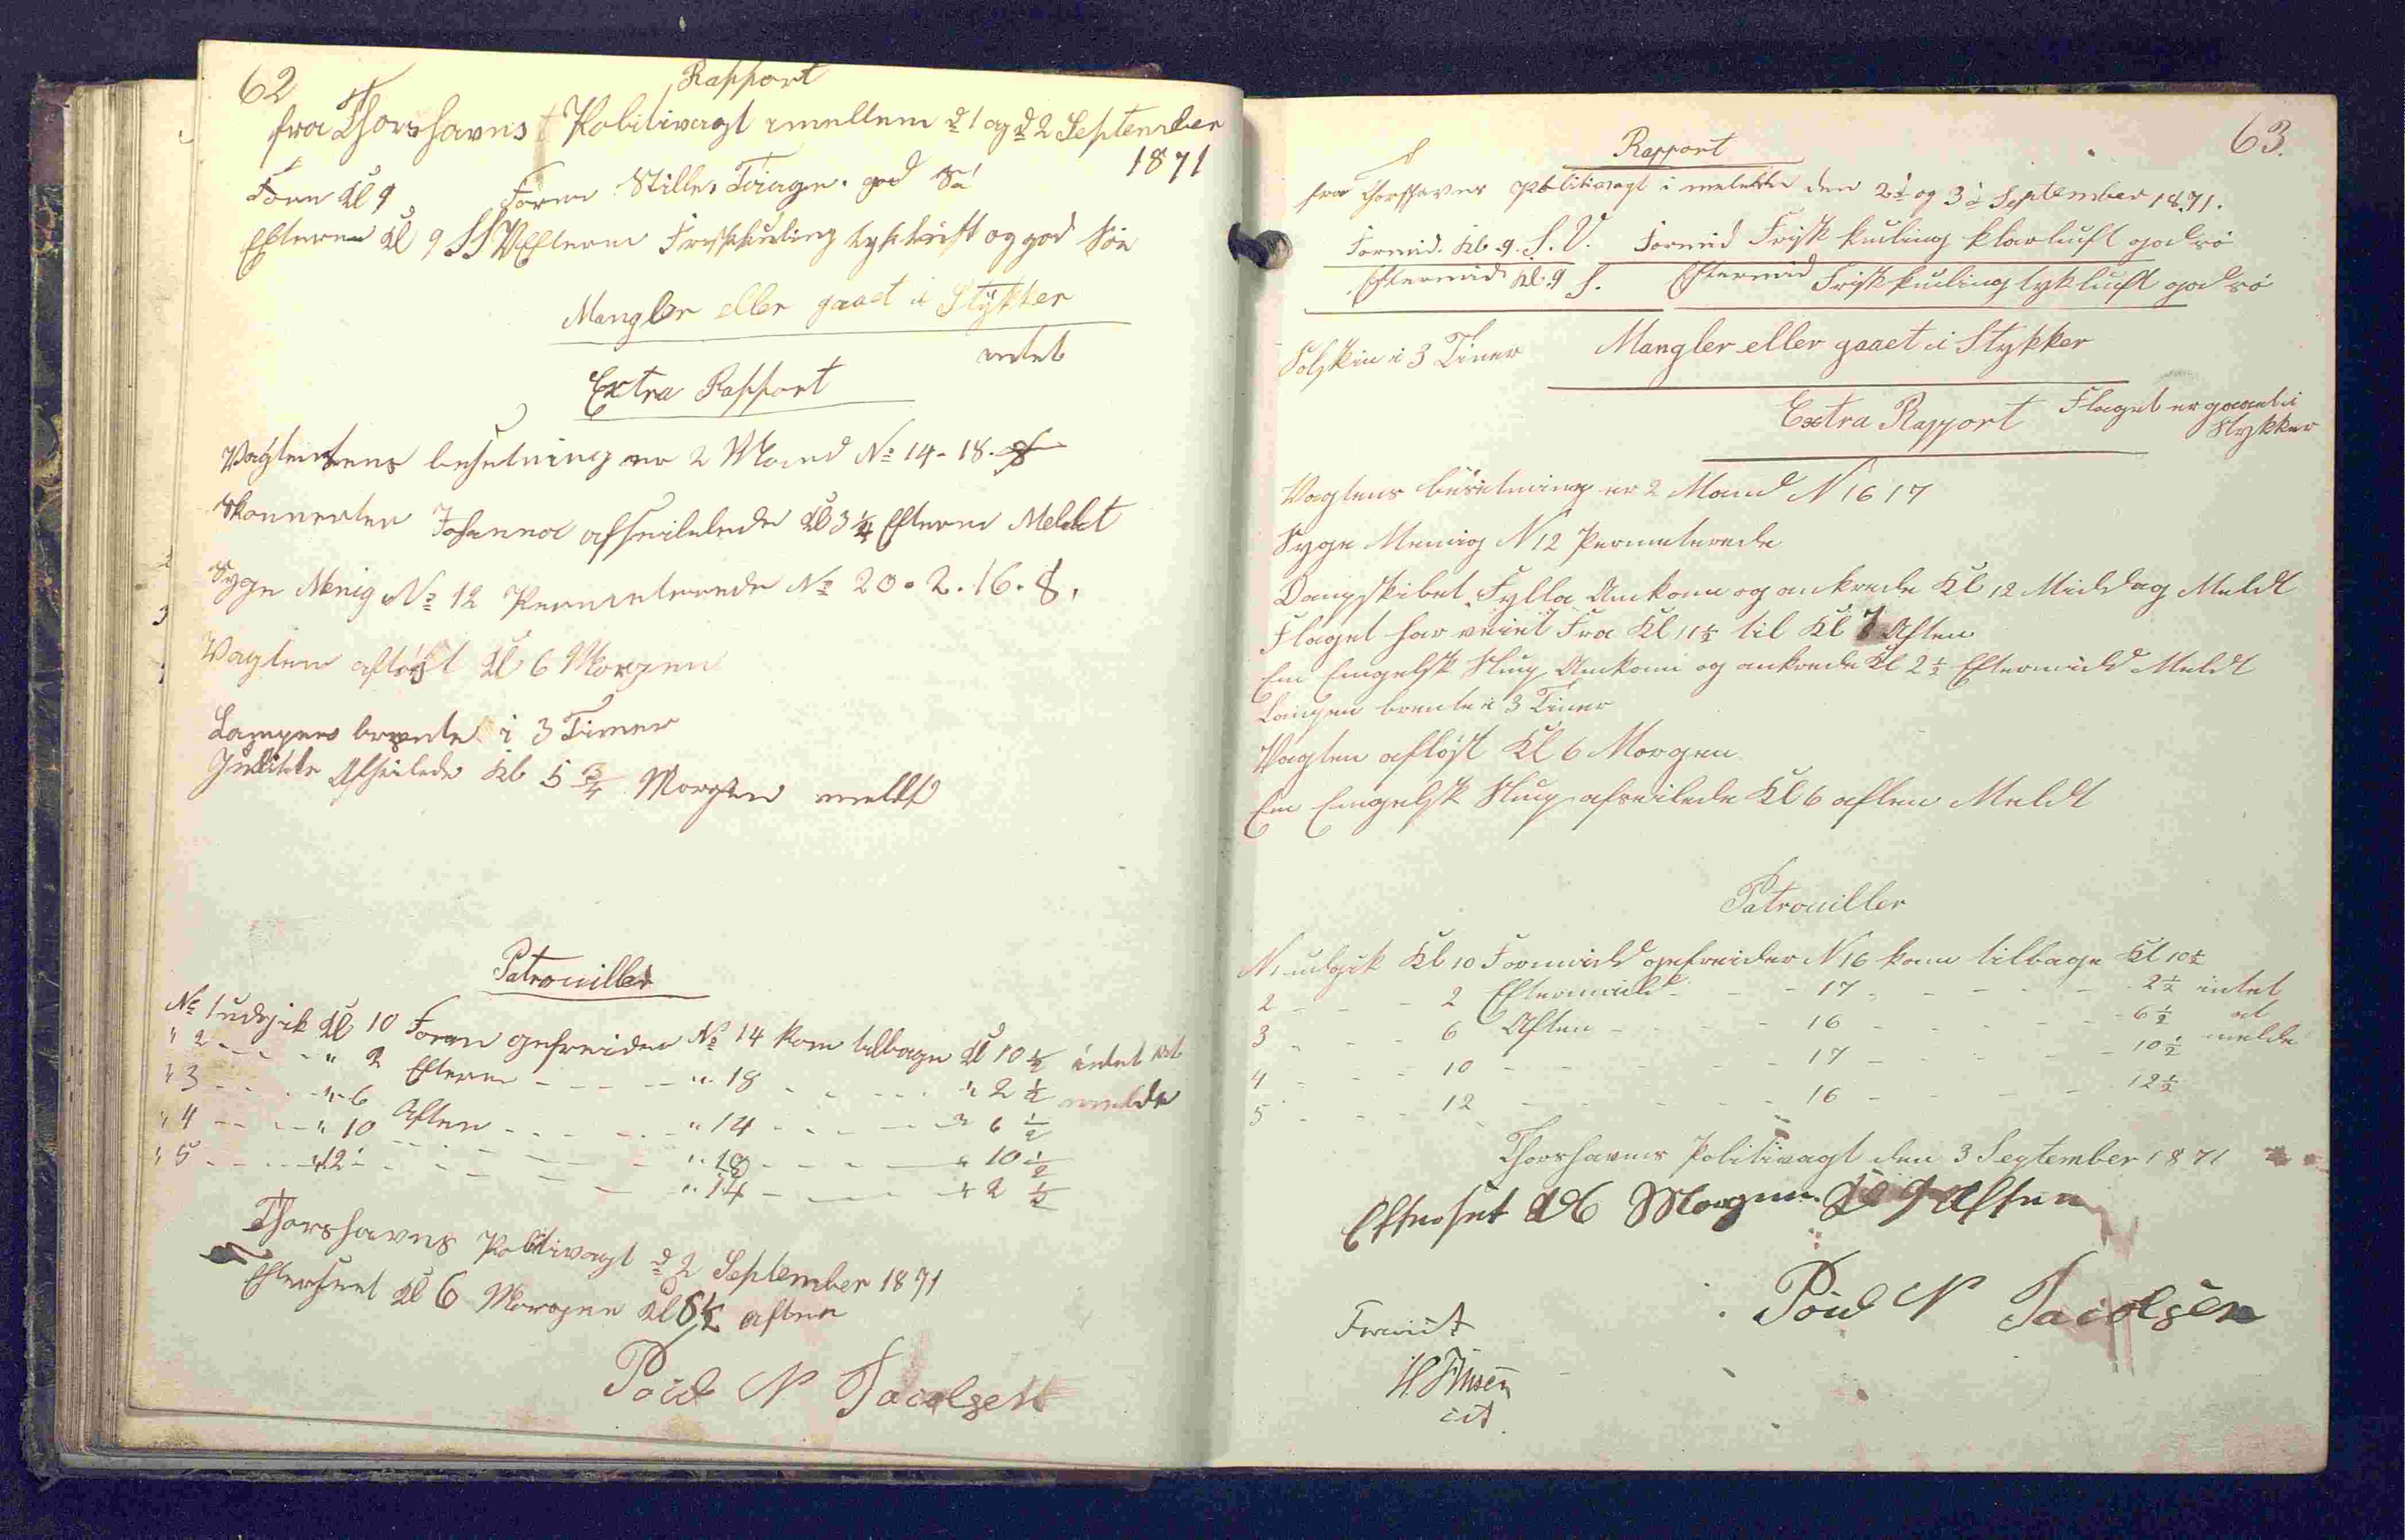 62
Rapport
fra Thorshavns Politivagt imellem d 1 og d 2 September
1871
Form Kl 9 Form Stille, Taage. god Sö
Efterm Kl 9 SSV Efterm Friskkuling tyk luft og god Söe
Mangler eller gaaet i Stykker
intet
Extra Rapport
Vagtens besetning er 2 Mand No 14-18.
Skonnerten Johanna afseilede Kl 3 1/4 Efterm Meldt
Syge Menig No 12 Permeterede No 20. 2. 16. 8.
Vagten aflöst Kl 6 Morgen
Lampen brente i 3 Timer
Afseilede Kl 5 3/4 Morgen meldt
Patrouiller
No 1 udgik Kl 10 Form gefreider No 14 kom tilbage Kl 10 1/2 intet at
" 2 - - - " 2 Efterm - - - " 18 - - - " 2 1/2 melde
" 3 - - - " 6 Aften - - - " 14 - - - " 6 1/2
" 4 - - - " 10 - - - " 18 - - - " 10 1/2
" 5 - - - " 12 - - - " 14 - - - " 2 1/2
Thorshavns Politivagt d 2 September 1871
Efterseet Kl 6 Morgen Kl 8 1/2 aften
Poul N Jacobsen
63.
Rapport
fra Thorshavns Politivagt i mellem den 2 og 3 September 1871.
Formid. Kl. 9. S. V. Formid Frisk kuling klar luft god sö
Eftermid Kl. 9 S. Eftermid Frisk kuling tyk luft god sö
Solskin i 3 Timer Mangler eller gaaet i Stykker
Extra Rapport Flaget er gaaet i
Stykker
Vagtens besetning er 2 Mand N 16 17
Syge Menig N 12 Permeterede
Dampskibet Fylla Ankom og ankrede Kl 12 Middag Meldt
Flaget har veiet Fra Kl 11 1/2 til Kl 7 Aften
En Engelsk Slup Ankom og ankrede Kl 2 1/2 Eftermidd Meldt
Lampen brente i 3 Timer
Vagten aflöst Kl 6 Morgen
En Engelsk Slup afseilede Kl 6 aften Meldt
Patrouiller
N 1 udgik Kl 10 Formidd gefreider N 16 kom tilbage Kl 10 1/2
2 - - - 2 Eftermidd - - - 17 - - - 2 1/2 intet
3 - - - 6 Aften - - - 16 - - - 6 1/2 at
4 - - - 10 - - - 17 - - - 10 1/2 melde
5 - - - 12 - - - 16 - - - 12 1/2
Thorshavns Politivagt den 3 September 1871
Efterset Kl 6 Morgen Kl 9 Aften
Poul N Jacobsen
H Finsen